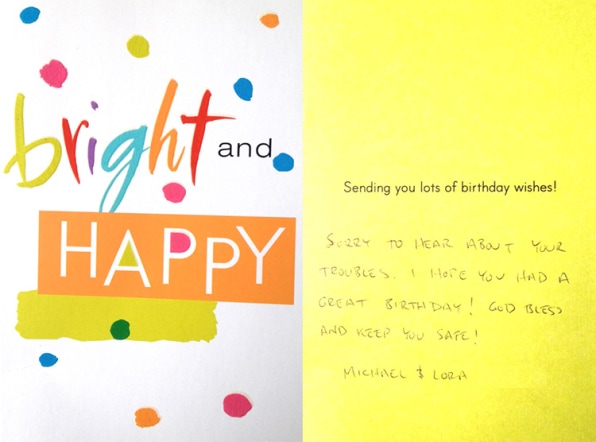 bright and
HAPPY
Sending you lots of birthday wishes!
SORRY TO HEAR ABOUT YOUR
TROUBLES. I HOPE YOU HAD A
GREAT BIRTHDAY! GOD BLESS
AND KEEP YOU SAFE!
MICHAEL & LORA